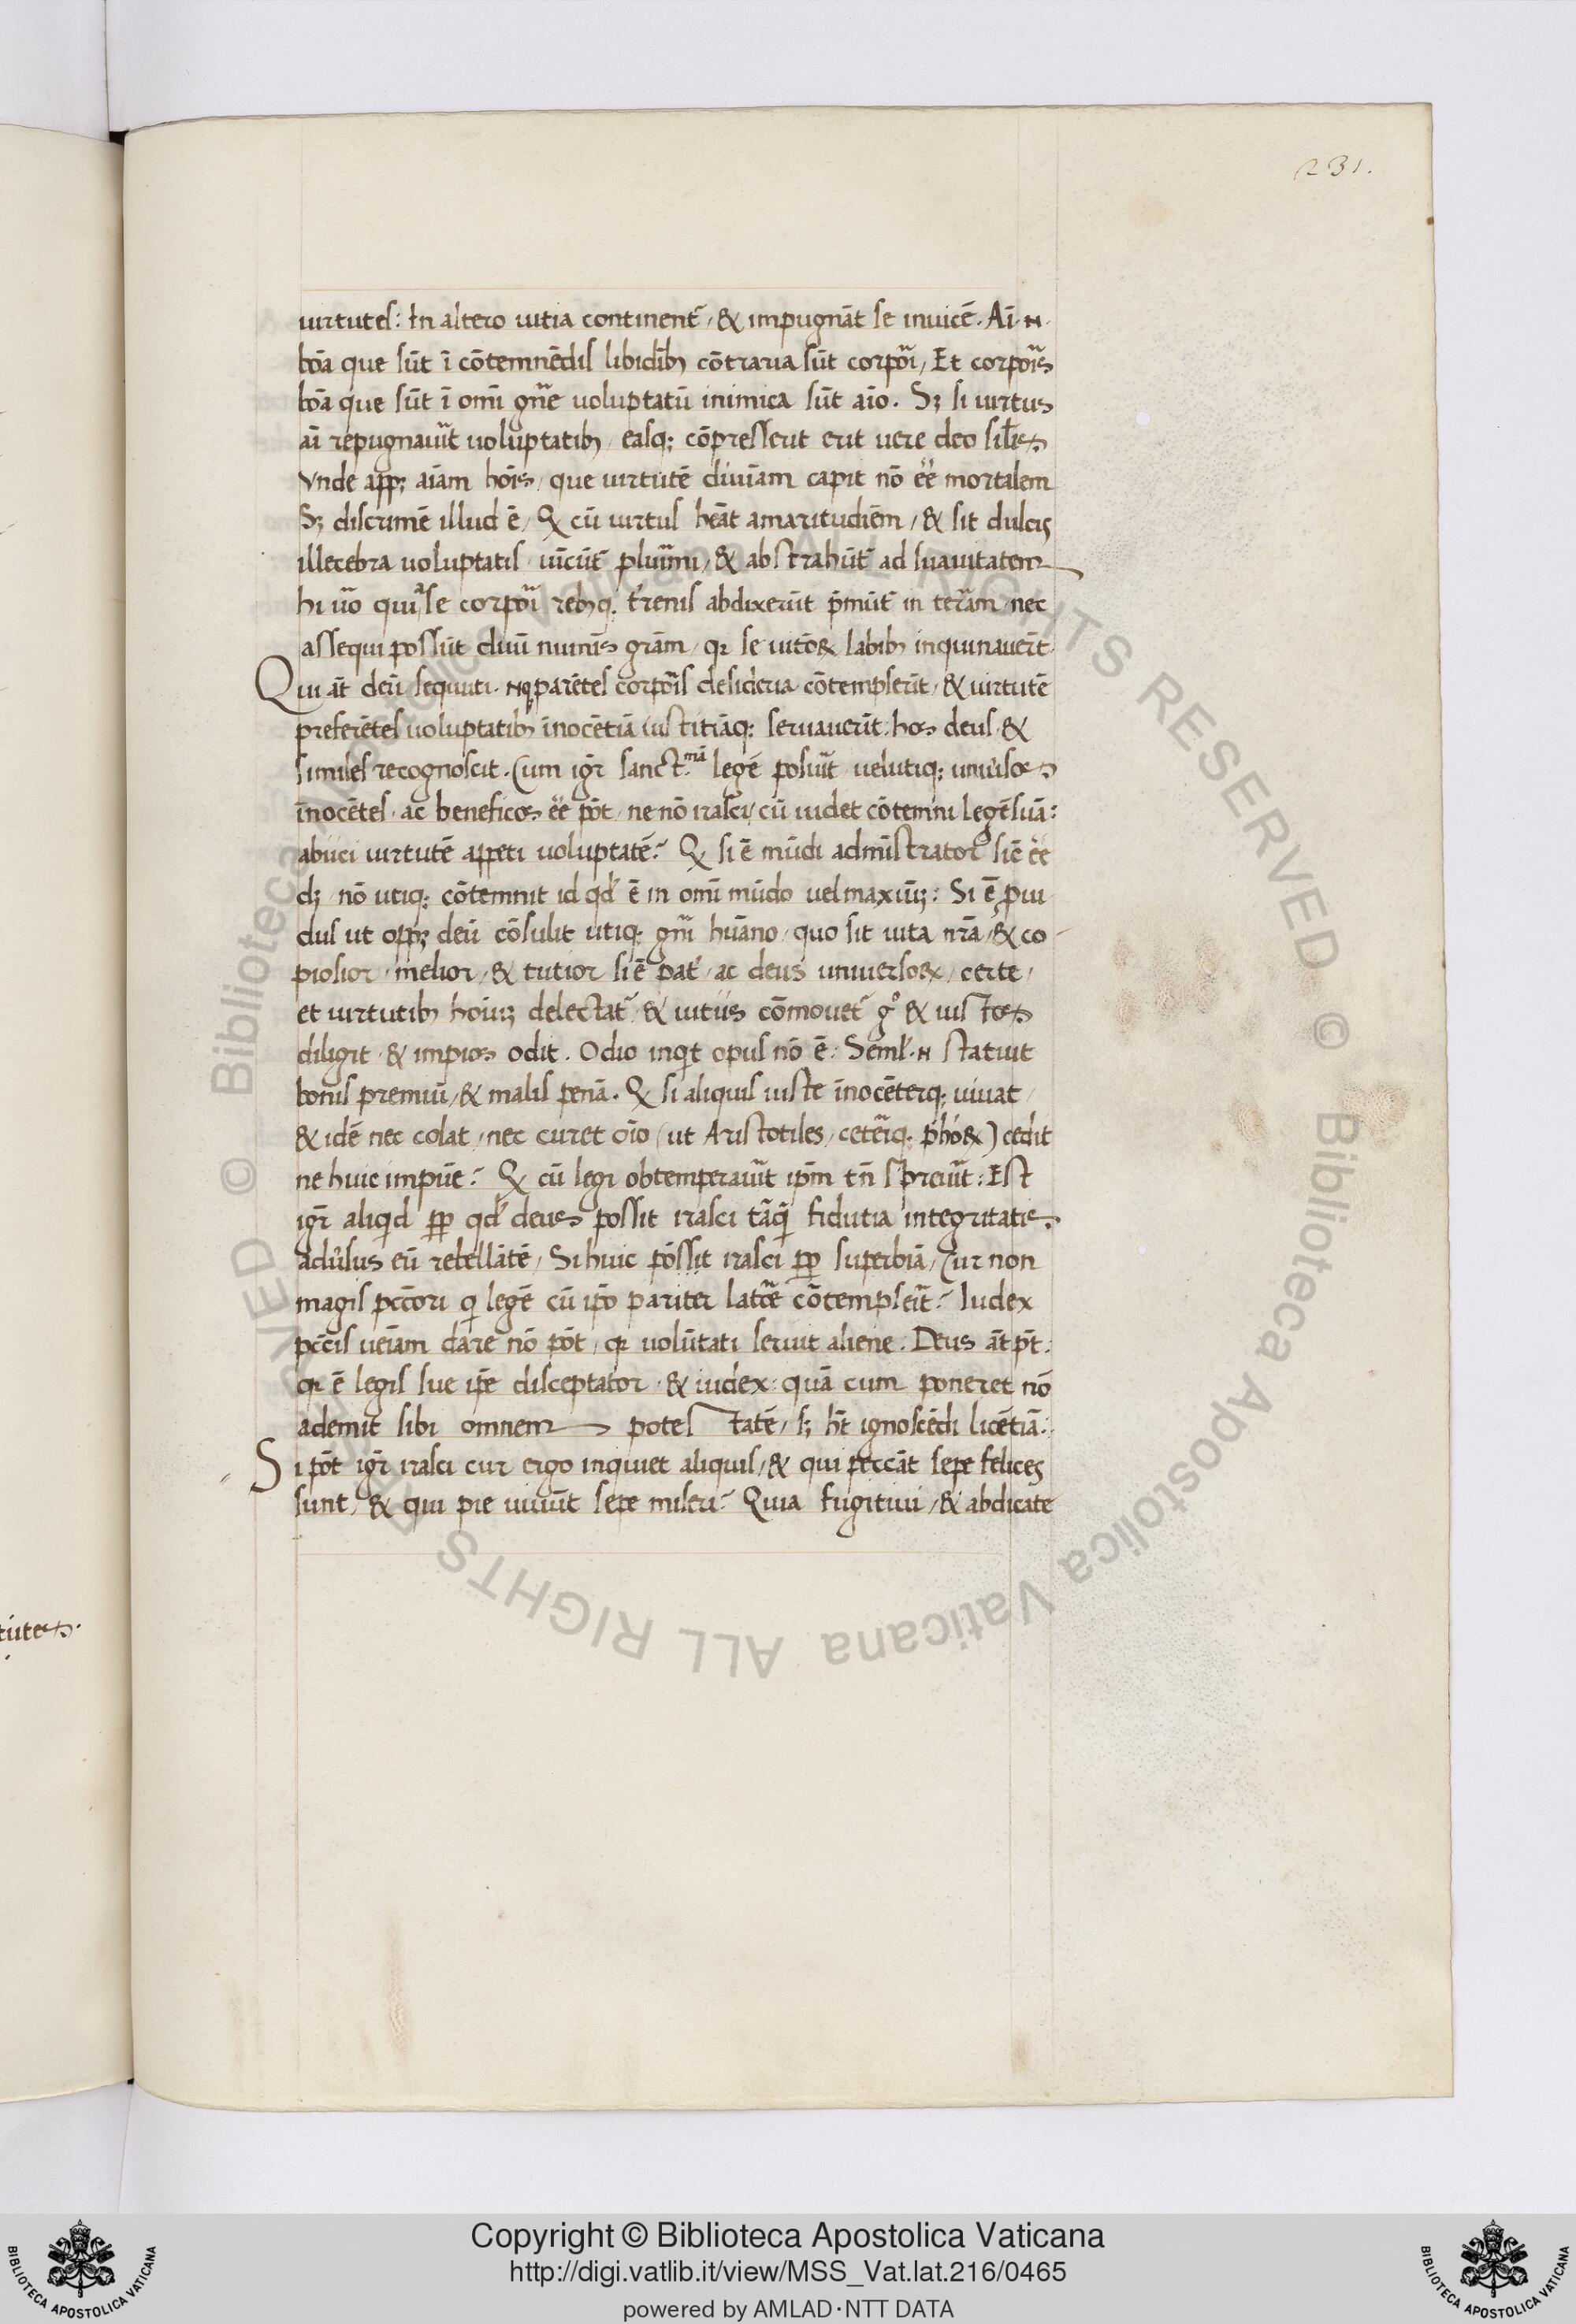 231.
uirtutes: In altero uitia continent᷑, & impugnāt se inuicē. Aı̄. N.
bōa que sūt ī cōtemnēdis libidı̄b; cōtraria sūt corpōı, Et corpōıs
bōa que sūt ī omı̄ gn̄e uoluptatū inimica sūt aı̄o. S; si uirtus
aı̄ repugnauı̄t uoluptatib; easq; cōpresserit erit uere deo sil̄es
Vnde app; aı̄am hōıs, que uirtutē diuı̄am capit nō ēē mortalem
S; discrimē illud ē, Q cū uirtus hēāt amaritudı̄em, & sit dulcis
illecebra uoluptatis uı̄cūt᷑ plurı̄mi, & abstrahūt᷑ ad suauitatem
hi ūo qui se corpōı rebq; t̄renis abdixerūt p̄mūt᷑ in terram nec
assequi possūt diuı̄ numı̄s grām, qr se uitōꝝ labib; inquinauer̄t.
Qui āt deū sequuti. Nq; parētes corpōıs desideria cōtempserūt, & uirtutē
preferētes uoluptatib; īnocētiā iustitiāq; seruauerūt: hos deus, &
similes recognoscit. Cum igr̄ sanct.mā legē posuı̄t uelitiq; uniūsos
īnocētes ac beneficos ēē pōt, ne nō irasci, cū uidet cōtemni legē suā:
abiici uirtutē appeti uoluptatē? Q si ē mūdi admı̄strator siē ēē
d; nō utiq; cōtemnit id qd̄ ē in omı̄ mūdo uel maxiū;: Si ē p̄ui
dus ut opp; deū cōsulit utiq; gn̄ı hūano, quo sit uita nr̄a, & co
piosior, melior, & tutior si ē pat̄ ac deus uniuersoꝝ, certe,
et uirtutib; hoı̄u; delectat᷑ & uitiis cōmouet᷑ gº & iustos
diligit & impios odit. Odio inqt opus nō ē: Seml̄. N statuit
bonis premiū, & malis penā. Q si aliquis iuste īnocēterq; uiuat,
& idē nec colat, nec curet oı̄o (ut Aristotiles, ceterıq; ph̄oꝝ) cedit
ne huic impūe? Q cū legi obtemperauı̄t ip̄m tn̄ spreuı̄t: Est
igr̄ aliqd ꝓp qd̄ deus possit irasci tāq̄ fidutia integritatis.
adūsus eū rebellātē, Si huic possit irasci ꝓp superbiā, Cur non
magis pcc̄ori q legē cū ip̄o pariter latōē cōtempseı̄t? Iudex
pcc̄is ueı̄am dare nō pōt, qr uolūtati seruit aliene. Deus āt pt̄:
qr ē legis sue ip̄e disceptator & iudex: quā cum poneret nō
ademit sibi omnem potestatē, s; h̄t ignoscēdi licētiā:
Si pōt igr̄ irasci cur ergo inquiet aliquis, & qui peccāt sepe felices
sunt, & qui pie uiuūt sepe miseri? Quia fugitiui, & abdicate
tutes.
© Biblioteca Apostolica Vaticana ALL RIGHTS RESERVED © Biblioteca Apostolica Vaticana ALL RIGHTS RESERVED
Copyright © Biblioteca Apostolica Vaticana
http://digi.vatlib.it/view/MSS_Vat.lat.216/0465
powered by AMLAD·NTT DATA
BIBLIOTECA APOSTOLICA VATICANA
BIBLIOTECA APOSTOLICA VATICANA